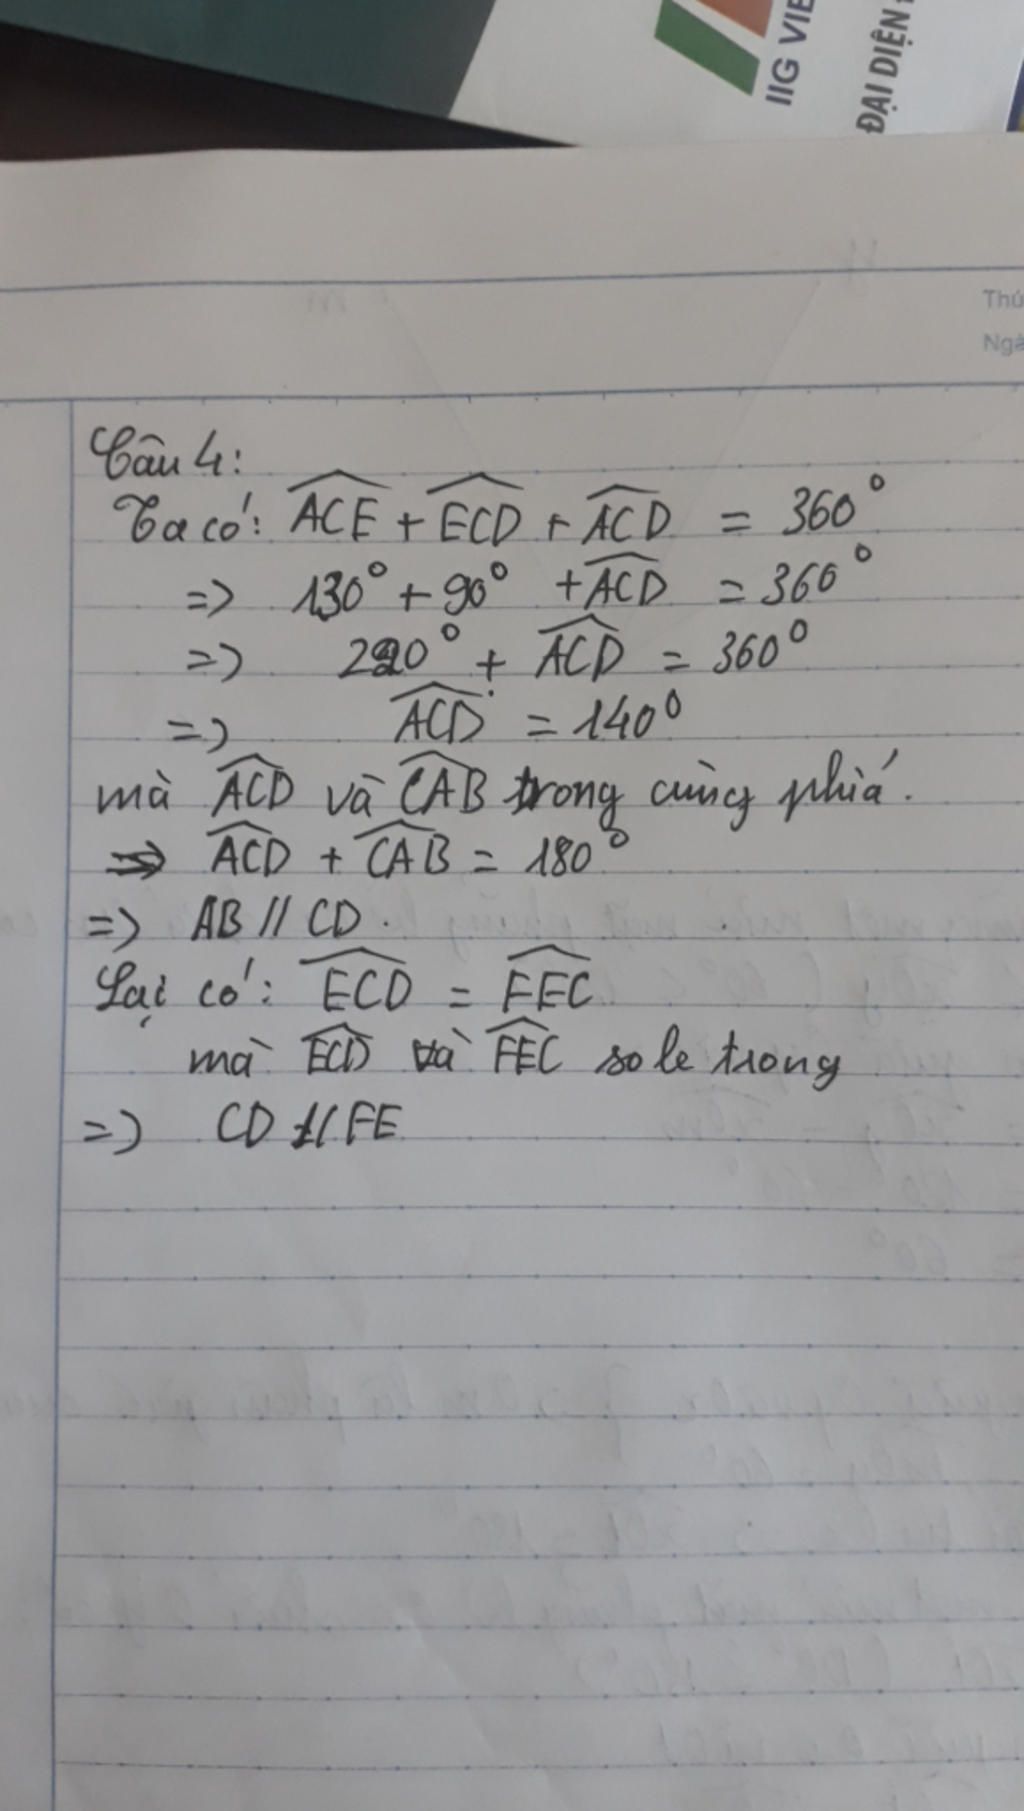 IIG VIE
ĐẠI DIỆN
Thứ
Ngà
Câu 4:
Ta có: \widehat{ACE} + \widehat{ECD} + \widehat{ACD} = 360°
=> 130° + 90° + \widehat{ACD} = 360°
=> 220° + \widehat{ACD} = 360°
=> \widehat{ACD} = 140°
mà \widehat{ACD} và \widehat{CAB} trong cùng phía.
=> \widehat{ACD} + \widehat{CAB} = 180°
=> AB // CD.
Lại có: \widehat{ECD} = \widehat{FEC}
mà \widehat{ECD} và \widehat{FEC} so le trong
=> CD // FE